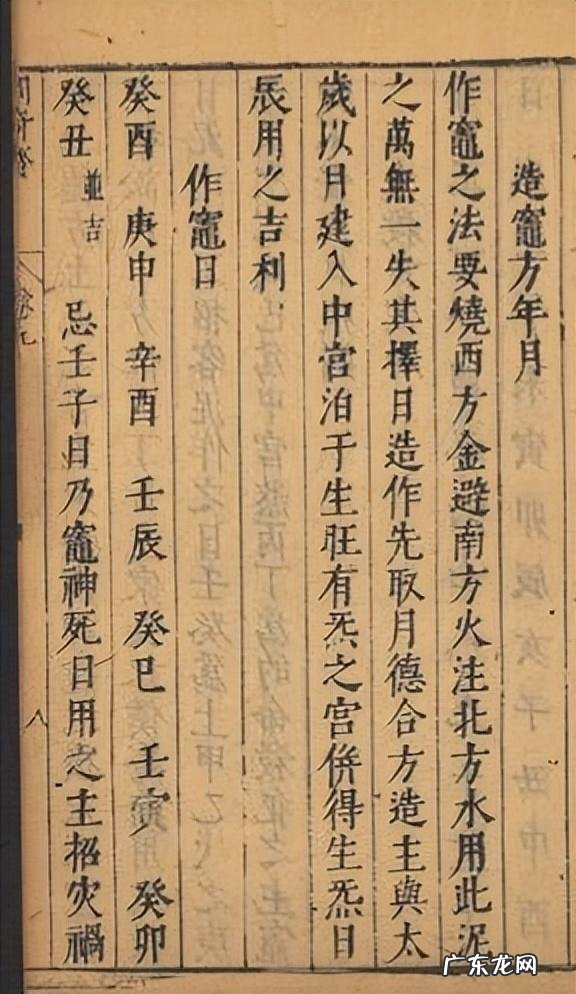 造竈方年月
作竈之法要燒西方金避南方火注北方水用此泥
之萬無一失其擇日造作先取月德合方造主與太
歲以月建入中宮泊于生旺有炁之宮倂得生炁日
辰用之吉利
作竈日
癸酉 庚申 辛酉 壬辰 癸巳 壬寅 癸卯
癸丑 並吉 忌壬子日乃竈神死日用之主招灾禍
八
广东龙网